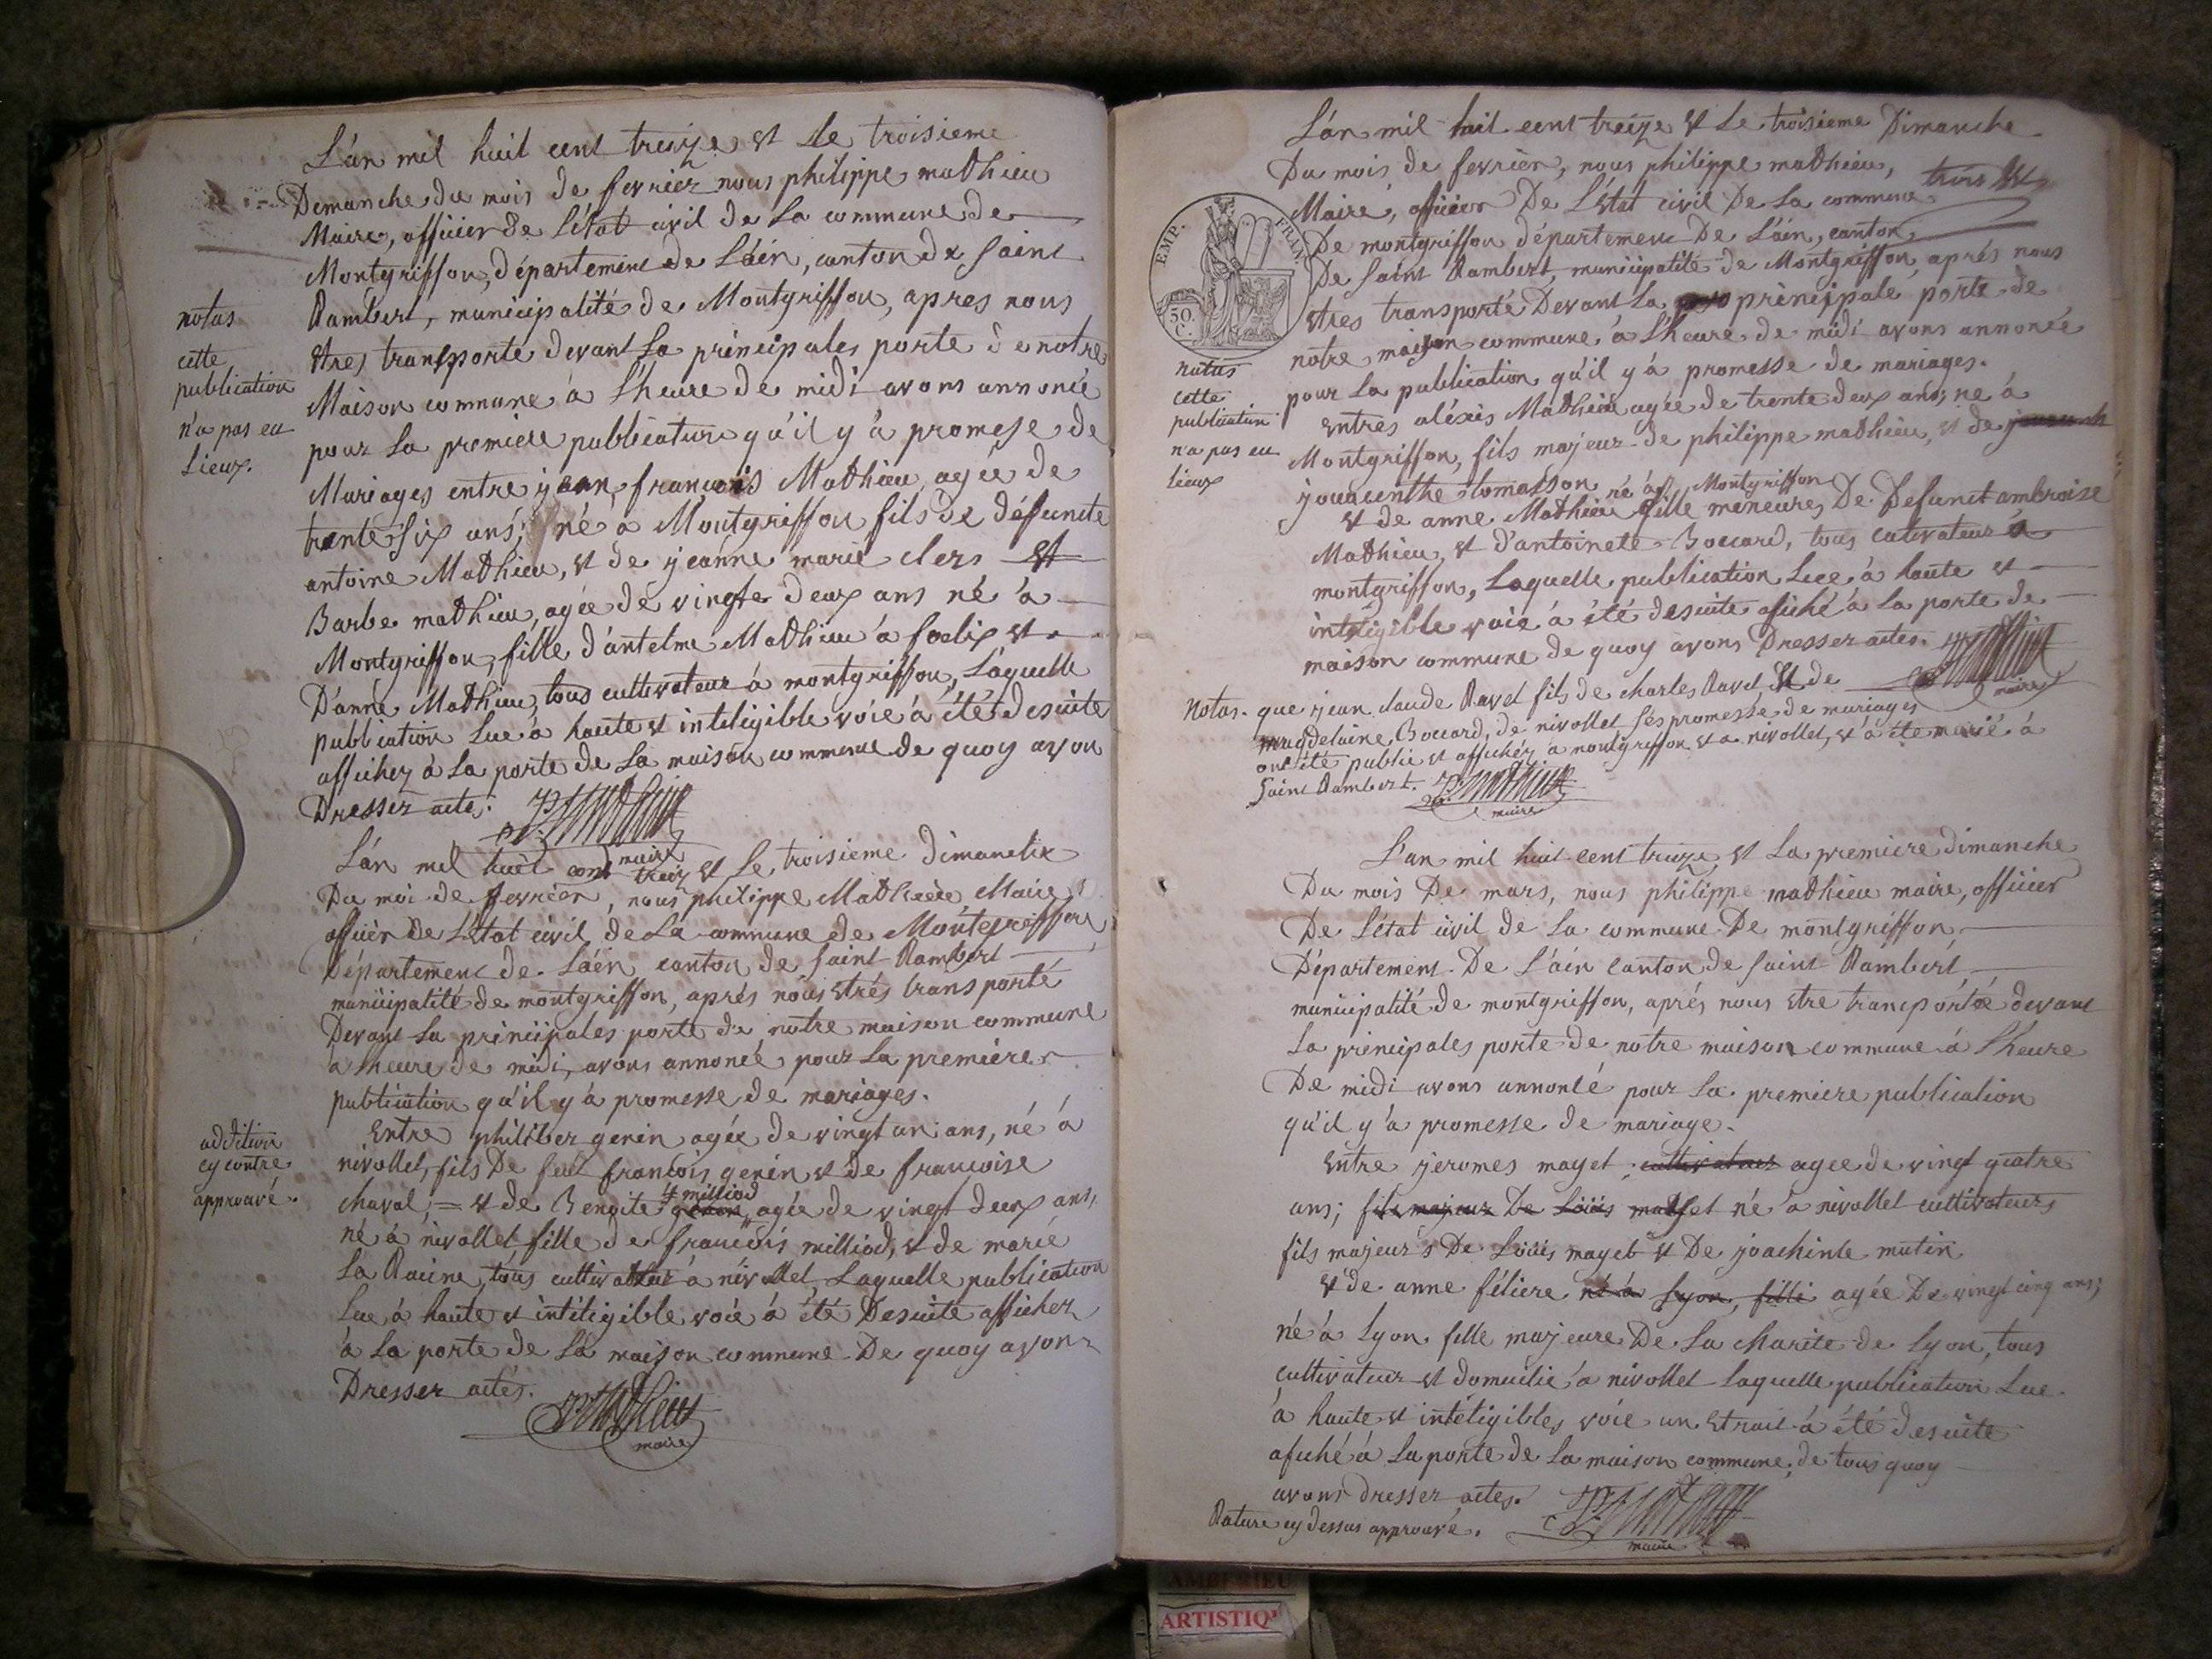 L'an mil huit cent treize et le troisieme
Demanche du mois de fevrier nous philippe mathieu
Maire, officier de L'état civil de La commune de
Montgriffon, département de L'áin, canton de Saint
Rambert, municipalité de Montgriffon, apres nous
etres transporté devant La principales porte de notre
Maison commune à l'heure de midi avons annoncé
pour La premiere publication qu'il y'à promese de
Mariages entre jean françois Mathieu agée de
trente six ans; né à Montgriffon fils de défuncte
antoine Mathieu, et de jeanne marie clers et
Barbe mathieu, agée de vingte deux ans né à
Montgriffon, fille d'antelme Mathieu à foelix et
D'anne Mathieu, tous cultivateur à montgriffon, Laquelle
publication Lue à haute et inteligible voie à été desuite
afficher à La porte de La maison commune de quoy avon
Dresser acte. P. Mathieu
maire
notas
cette
publication
n'a pas eu
Lieux.
L'án mil huit cent treize et Le troisieme dimanche
Du moi de fevrier, nous philippe Mathieu, Maire
officier De L'Etat civil de La commune de Montgriffon
Département de L'áin canton de saint Rambert
municipalité de montgriffon, aprés nous etrés transporté
Devant La principales porte de notre maison commune
à l'heure de midi, avons annoncé pour La premiere
publication qu'il y à promesse de mariages.
Entre philiber genin agée de vingt un ans, né à
nivollet, fils De feu françois genin et de françoise
chaval, = et de Benoite genin milliod agée de vingt deux ans,
né à nivollet fille de françois milliod, et de marie
La Racine, tous cultivateur à nivollet, Laquelle publication
Lue à haute et intéligible voie à été Desuite afficher
à La porte de La maison commune De quoy avon
Dresser actes.
P. Mathieu
maire
addition
cy contre
approuvé.
L'án mil huit cent treize et Le troisieme Dimanche
Du mois de fevrier, nous philippe mathieu,
Maire, officier De L'Etat civil De La commune
De montgriffon département De L'áin, canton
De Saint Rambert municipalité de Montgriffon, aprés nous
etres transporté Devant La principale porte de
notre maison commune à l'heure de midi avons annoncée
pour La publication qu'il y à promesse de mariages.
Entres aléxis Mathieu agée de trente deux ans, né à
Montgriffon, fils majeur de philippe mathieu, et de
jouacinthe tomasson né à Montgriffon
et de anne Mathieu fille meneures De Defunct ambroise
Mathieu, et d'antoinete Boccard, tous cultivateur à
montgriffon, Laquelle publication Lue à haute et
intéligible voie à été desuite afiché à La porte de
maison commune de quoy avons Dresser actes. P. Mathieu
maire
EMP. FRAN.
50.
C.
notas
cette
publication
n'a pas eu
Lieux
Notas. que jean claude Ravel fils de charles Ravel, Et de
magdelaine Boccard, de nivollet ses promesse de mariages
ont été publié et affichéz à montgriffon et a nivollet, et à été marié à
Saint Rambert. P. Mathieu
maire
L'an mil huit cent treize et La premiere dimanche
Du mois De mars, nous philippe mathieu maire, officier
De L'état civil de La commune De montgriffon
Département De L'áin canton de saint Rambert
municipalité de montgriffon, aprés nous etre transportée devant
La principales porte de notre maison commune à l'heure
De midi avons annoncé pour La premiere publication
qu'il y'à promesse de mariage.
Entre jeromes mayet, cultivateur agee de vingt quatre
ans; fils majeur De Loüis né à nivollet cultivateurs
fils majeurs De Loüis mayet et De joachinte mutin
et de anne féliere né à Lyon, fille agée De vingt cinq ans;
né à Lyon fille majeure De La charite de Lyon, tous
cultivateur et domicilié à nivollet Laquelle publication Lue
à haute et intéligibles voie un Etrait à été desuite
afiché à La porte de La maison commune, de tous quoy
avons dresser actes. P. Mathieu
maire
Rature cy dessus approuvé.
AMBERIEU
ARTISTIQ